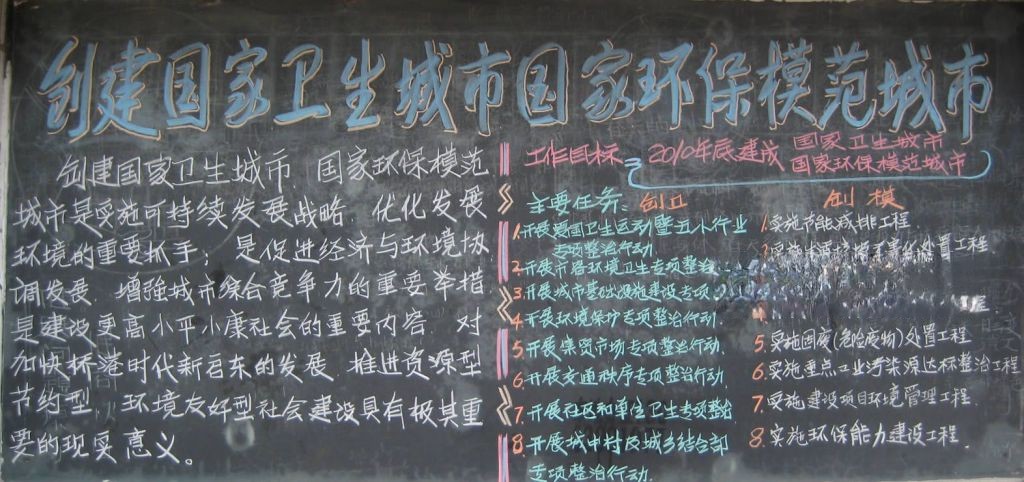 创建国家卫生城市国家环保模范城市
创建国家卫生城市、国家环保模范
城市是实施可持续发展战略、优化发展
环境的重要抓手；是促进经济与环境协
调发展、增强城市综合竞争力的重要举措
是建设更高小平小康社会的重要内容、对
加快桥港时代新启东的发展、推进资源型
节约型、环境友好型社会建设具有极其重
要的现实意义。
工作目标 2010年底建成 国家卫生城市
国家环保模范城市
主要任务: 创卫
1.开展爱国卫生运动暨五小行业
专项整治行动
2.开展市路环境卫生专项整治
3.开展城市基础设施建设专项
4.开展环境保护专项整治行动
5.开展集贸市场专项整治行动.
6.开展交通秩序专项整治行动
7.开展社区和单位卫生专项整治
8.开展城中村及城乡结合部
专项整治行动.
创模
1.实施节能减排工程
处置工程
5.实施固废(危险废物)处置工程
6.实施重点工业污染源达标整治工程
7.实施建设项目环境管理工程.
8.实施环保能力建设工程.